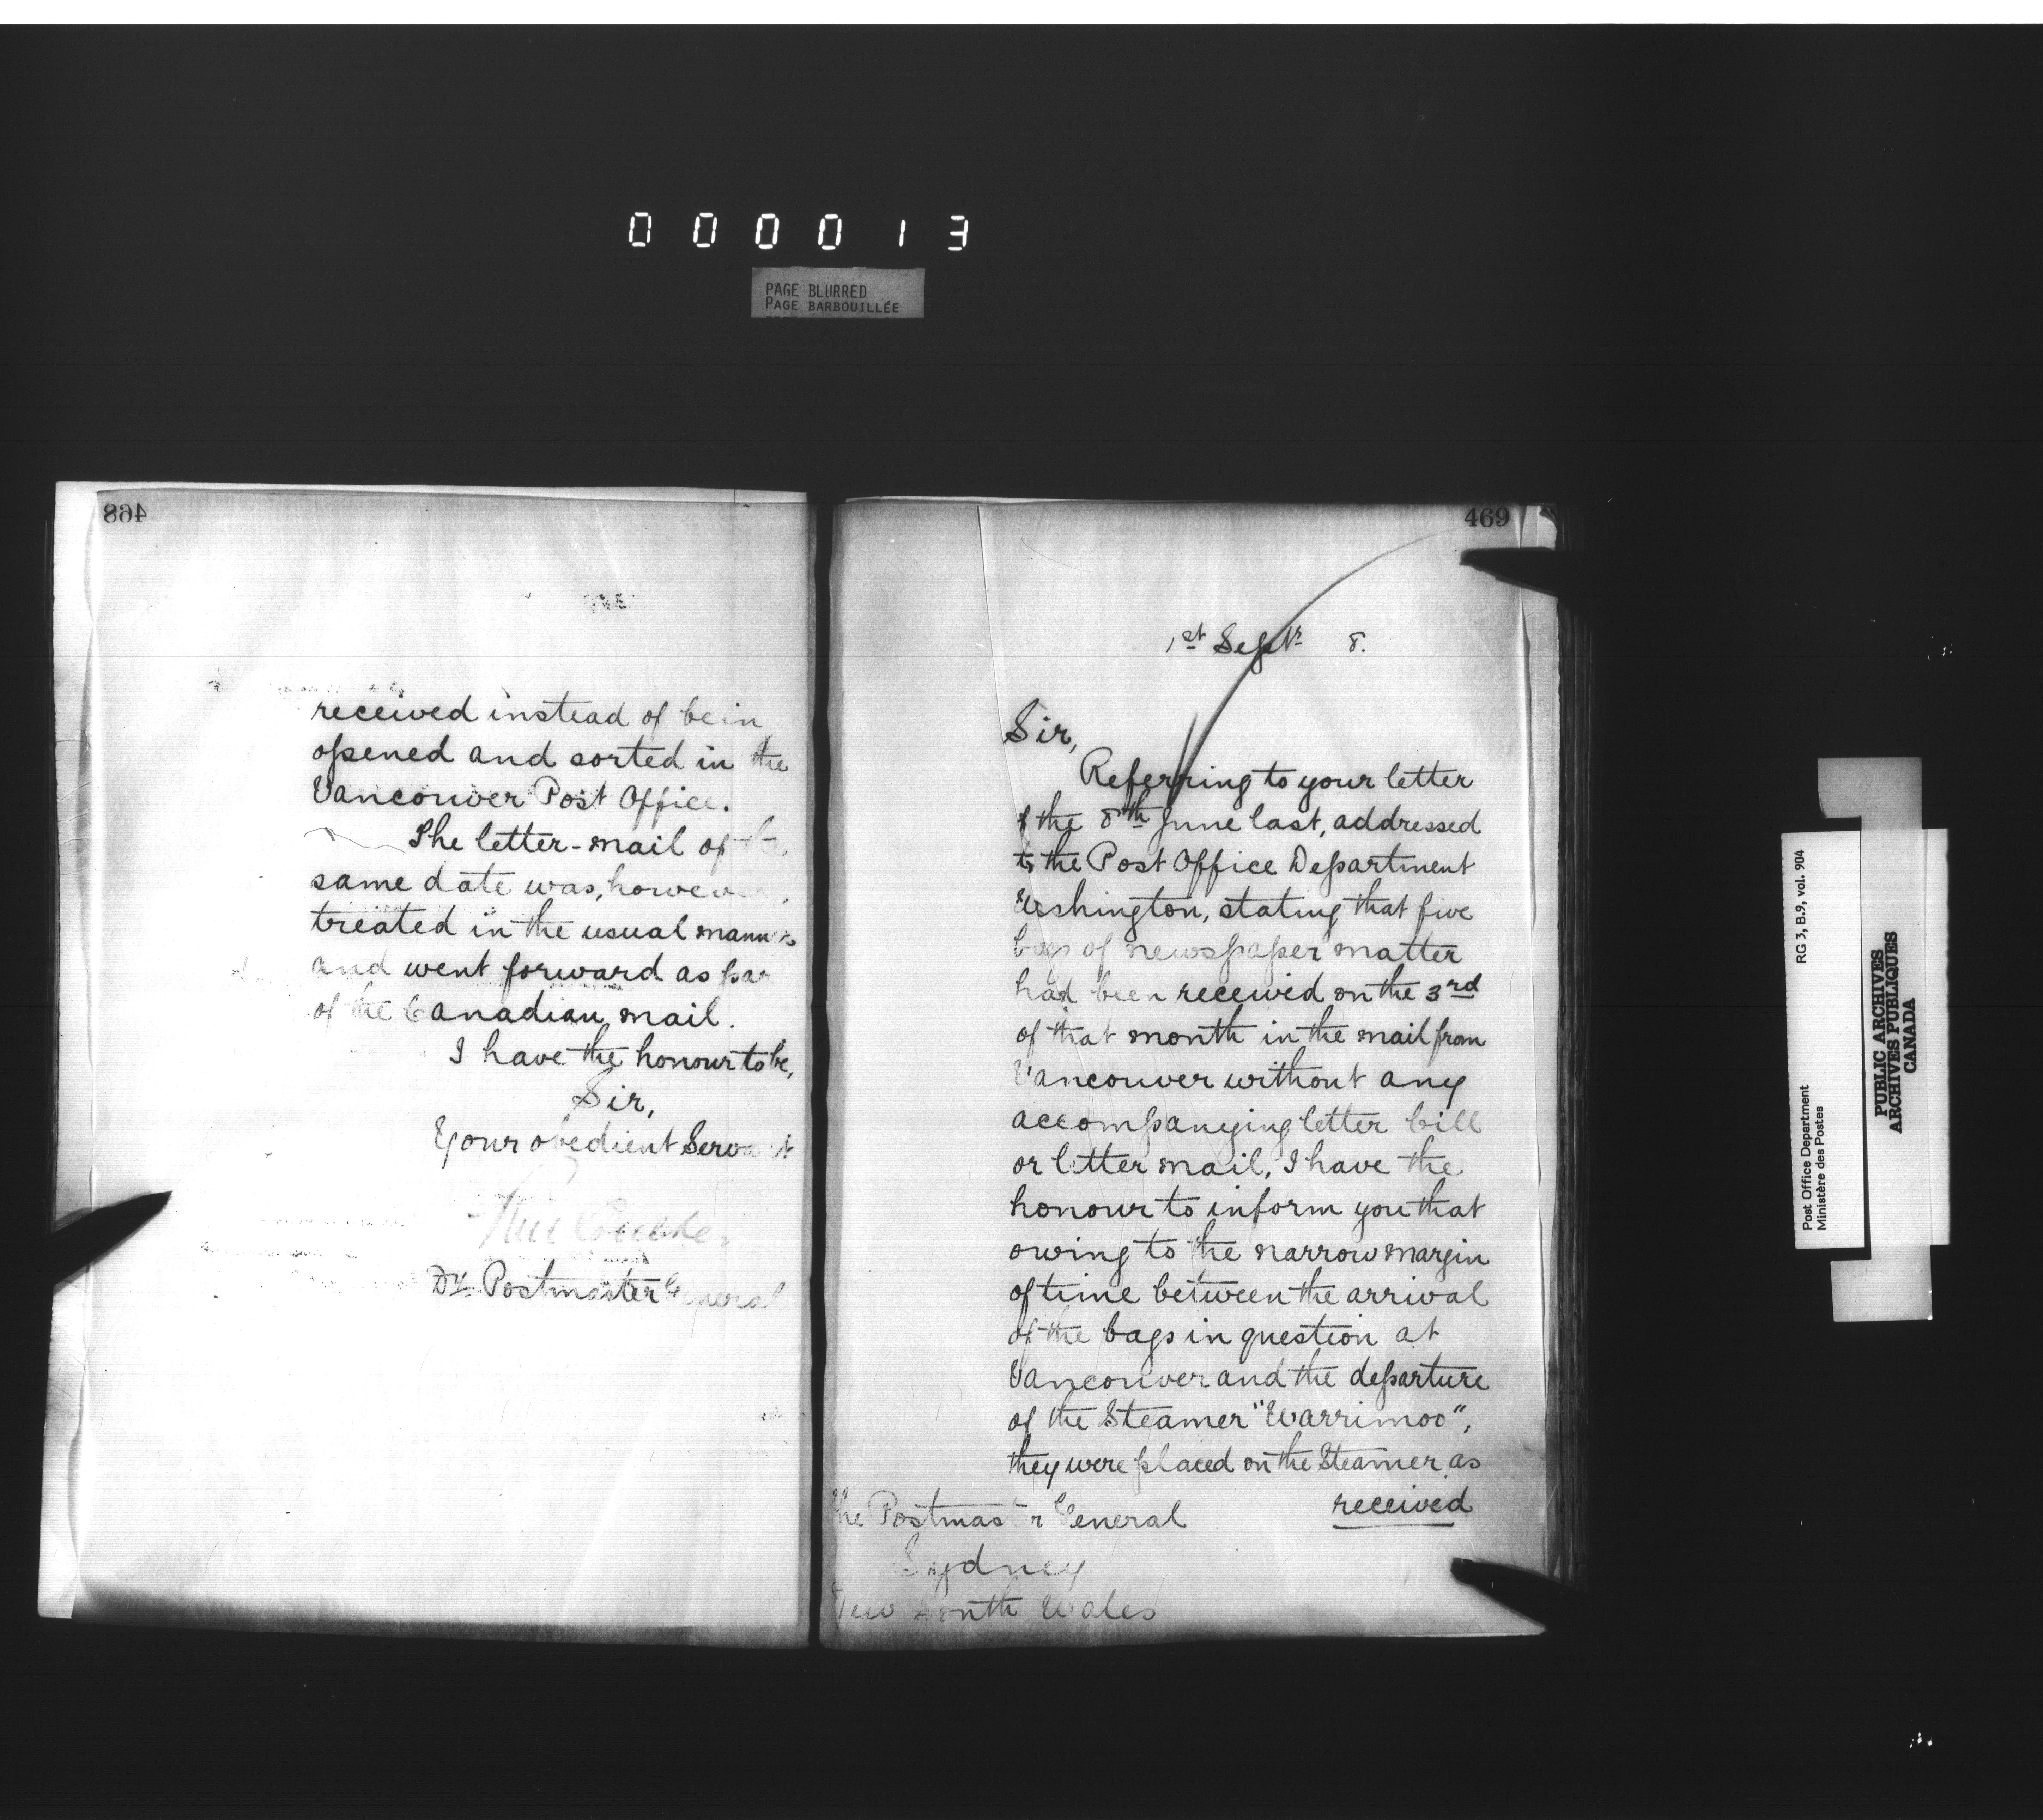 000013
PAGE BLURRED
PAGE BARBOUILLÉE
468
received instead of bein
opened and sorted in the
Vancouver Post Office.
The letter-mail of the
same date was, however,
treated in the usual manner
and went forward as par
of the Canadian mail.
I have the honour to be,
Sir,
Your obedient Servant
Dy. Postmaster General
469
1st Septr 8.
Sir,
Referring to your letter
of the 8th June last, addressed
to the Post Office Department
Washington, stating that five
bags of newspaper matter
had been received on the 3rd
of that month in the mail from
Vancouver without any
accompanying letter bill
or letter mail, I have the
honour to inform you that
owing to the narrow margin
of time between the arrival
of the bags in question at
Vancouver and the departure
of the Steamer "Warrimoo",
they were placed on the Steamer as
received
the Postmaster General
Sydney
New South Wales
RG 3, B.9, vol. 904
Post Office Department
Ministère des Postes
PUBLIC ARCHIVES
ARCHIVES PUBLIQUES
CANADA